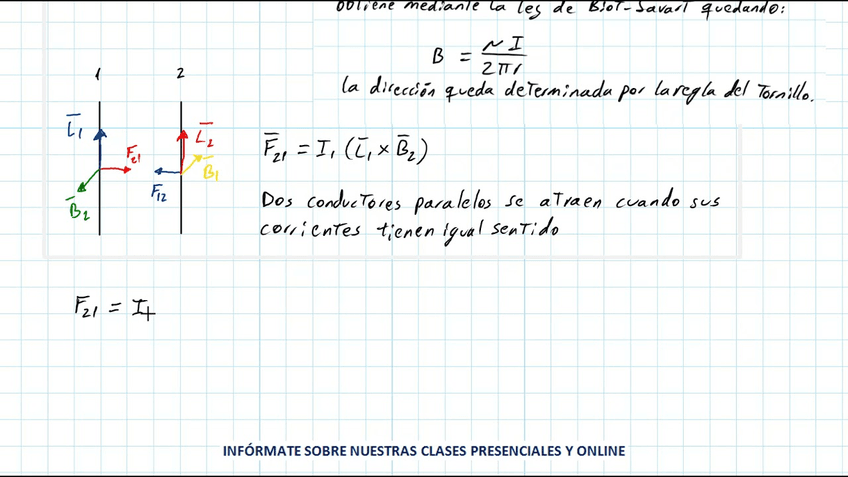 obtiene mediante la ley de Biot-Savart quedando:
B = μ I / 2πr
la dirección queda determinada por la regla del Tornillo.
1 2
L̅1 L̅2
F21 B̅1
F12
B̅2
F̅21 = I1 (L̅1 × B̅2)
Dos conductores paralelos se atraen cuando sus
corrientes tienen igual sentido
F21 = I1
INFÓRMATE SOBRE NUESTRAS CLASES PRESENCIALES Y ONLINE